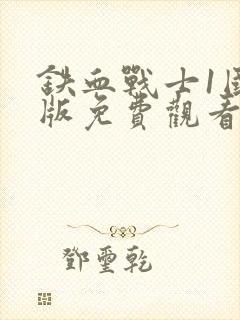 鉄血戰士1國
版免費觀看
鄧璽乾